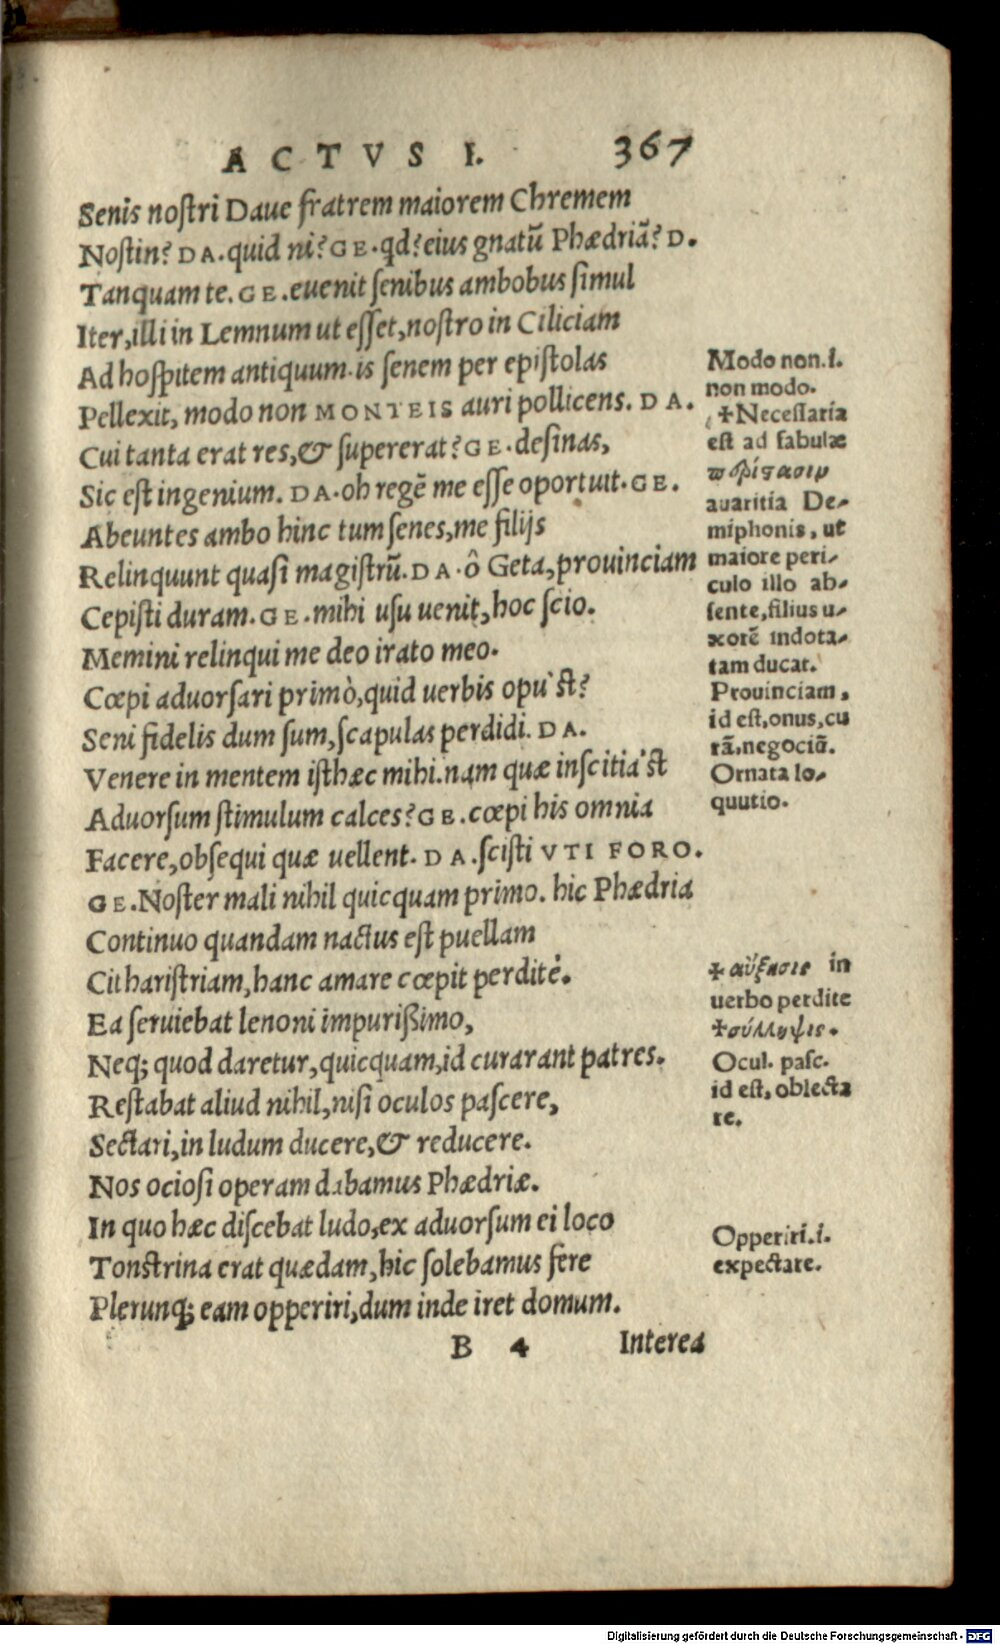 ACTVS I. 367
Senis noſtri Daue fratrem maiorem Chremem
Noſtin? DA. quid ni? GE. qd? eius gnatū Phædriā? D.
Tanquam te. GE. euenit ſenibus ambobus ſimul
Iter, illi in Lemnum ut eſſet, noſtro in Ciliciam
Ad hoſpitem antiquum. is ſenem per epiſtolas
Pellexit, modo non MONTEIS auri pollicens. DA.
Cui tanta erat res, & ſupererat? GE. deſinas,
Sic eſt ingenium. DA. oh regē me eſſe oportuit. GE.
Abeuntes ambo hinc tum ſenes, me filijs
Relinquunt quaſi magiſtrū. DA. ô Geta, prouinciam
Cepiſti duram. GE. mihi uſu uenit, hoc ſcio.
Memini relinqui me deo irato meo.
Cœpi aduorſari primò, quid uerbis opu'ſt?
Seni fidelis dum ſum, ſcapulas perdidi. DA.
Venere in mentem iſthæc mihi. nam quæ inſcitia'ſt
Aduorſum ſtimulum calces? GE. cœpi his omnia
Facere, obſequi quæ uellent. DA. ſciſti VTI FORO.
GE. Noſter mali nihil quicquam primo. hic Phædria
Continuo quandam nactus eſt puellam
Cithariſtriam, hanc amare cœpit perditè.
Ea ſeruiebat lenoni impurißimo,
Neq; quod daretur, quicquam, id curarant patres.
Reſtabat aliud nihil, niſi oculos paſcere,
Sectari, in ludum ducere, & reducere.
Nos ocioſi operam dabamus Phædriæ.
In quo hæc diſcebat ludo, ex aduorſum ei loco
Tonſtrina erat quædam, hic ſolebamus fere
Plerunq; eam opperiri, dum inde iret domum.
B 4 Interea
Modo non. i.
non modo.
✝Neceſſaria
eſt ad fabulæ
auaritia De-
miphonis, ut
maiore peri-
culo illo ab-
ſente, filius u-
xorē indota-
tam ducat.
Prouinciam,
id eſt, onus, cu
rā, negociū.
Ornata lo-
quutio.
✝αὔξησις in
uerbo perdite
✝σύλληψις.
Ocul. paſc.
id eſt, oblecta
re.
Opperiri. i.
expectare.
Digitalisierung gefördert durch die Deutsche Forschungsgemeinschaft - DFG